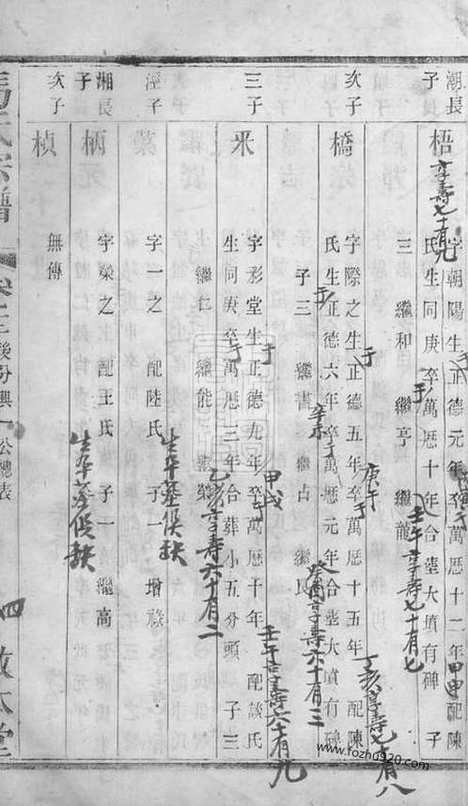 潮長子 梧 字朝陽生正德元年卒萬历十二年甲申配陳
享寿七十有九
氏生同庚卒萬历十年合塟大墳有碑 子
壬午享寿七十有七
三 繼和 繼亭 繼龍
次子 橋 字際之生于正德五年庚午卒于萬历十五年 配陳
丁亥享寿七十有八
氏生于正德六年辛未卒于萬历元年合塟大墳有碑
癸酉享寿六十有三
子三 繼書 繼占 繼良
三子 釆 字彤堂生于正德九年甲戌卒于萬历十年 配談氏
壬午享寿六十有九
生同庚卒于萬历三年合葬小五分頭 子三
乙亥享寿六十有二
繼仁 繼能 繼業
涇子 字一之 配陸氏 子一 增祿
生卒墓俟缺
湘長子 柄 字燦之 配王氏 子一 繼高
生卒墓俟缺
次子 楨 無傳
氏宗譜 卷二 後分興一公總表 四 敬本堂
www.fozhu920.com